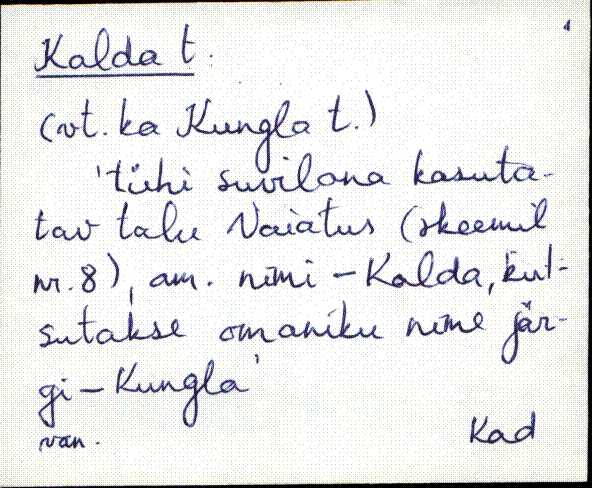 Kalda t.
(vt. ka Kungla t.)
'tühi suvilana kasuta-
tav talu Vaiatus (skeemil
nr. 8), am. nimi - Kalda, kut-
sutakse omaniku nime jär-
gi - Kungla'
van. Kad